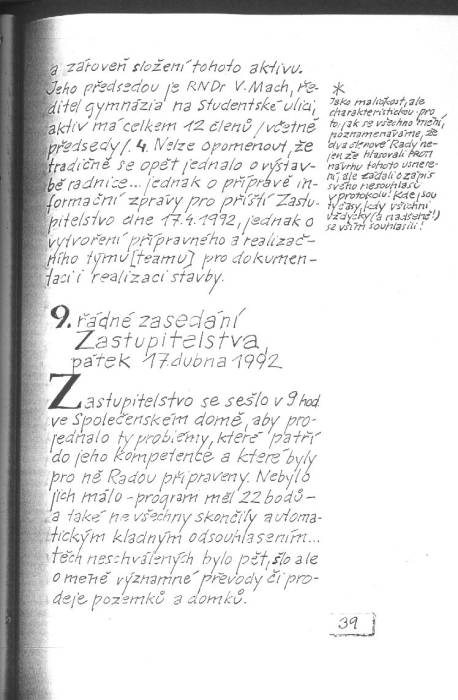 a zároveň složení tohoto aktivu.
Jeho předsedou je RNDr V. Mach, ře-
ditel gymnázia na Studentské ulici,
aktiv má celkem 12 členů /včetně
předsedy/. 4. Nelze opomenout, že
tradičně se opět jednalo o výstav-
bě radnice... jednak o přípravě in-
formační zprávy pro příští Zastu-
pitelstvo dne 17.4.1992, jednak o
vytvoření přípravného a realizač-
ního týmu [teamu] pro dokumen-
taci i realizaci stavby.
*
Jako maličkost, ale
charakteristickou pro
to, jak se všechno mění,
poznamenáváme, že
dva členové Rady ne-
jen že hlasovali PROTI
návrhu tohoto usnese-
ní, ale žádali o zápis
svého nesouhlasu
v protokolu! Kde jsou
ty časy, kdy všichni
vždycky (a nadšeně!)
se vším souhlasili!
9. řádné zasedání
Zastupitelstva,
pátek 17. dubna 1992
Zastupitelstvo se sešlo v 9 hod.
ve Společenském domě, aby pro-
jednalo ty problémy, které patří
do jeho kompetence a které byly
pro ně Radou připraveny. Nebylo
jich málo - program měl 22 bodů -
a také ne všechny skončily automa-
tickým kladným odsouhlasením...
těch neschválených bylo pět, šlo ale
o méně významné převody či pro-
deje pozemků a domků.
39